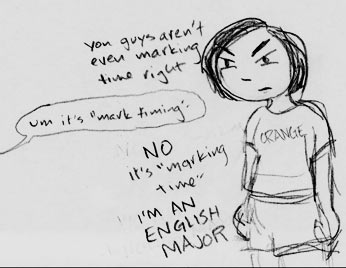 you guys aren't
even marking
time right
um it's "mark timing"
NO
it's "marking
time"
I'M AN
ENGLISH
MAJOR
ORANGE